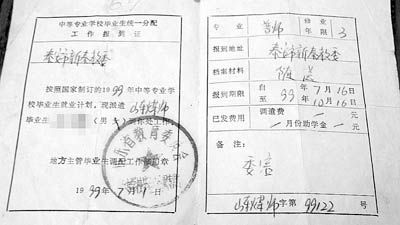 中等专业学校毕业生统一分配
工作报到证
泰安市新泰教委
按照国家制订的1999年中等专业学
校毕业生就业计划,现派遣山东煤师
毕业生 (男 到你处工作
地方主管毕业生调配工作部章
1999年7月1日
专业 普师 修业年限 3
报到地址 泰安市新泰教委
档案材料
报到期限 自99年7月16日
至99年10月16日
已发费用 调遣费 元
月份助学金 元
备注:
委培
字第99122号